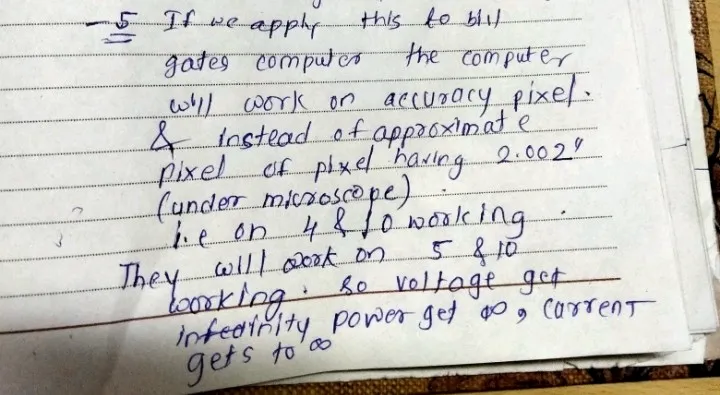 -5 If we apply this to bill
gates computer the computer
will work on accuracy pixel.
& instead of approximate
pixel of pixel having 2.002"
(under microscope)
i.e on 4 & 10 working
They will work on 5 & 10
working. so voltage get
infedinity power get ∞, current
gets to ∞